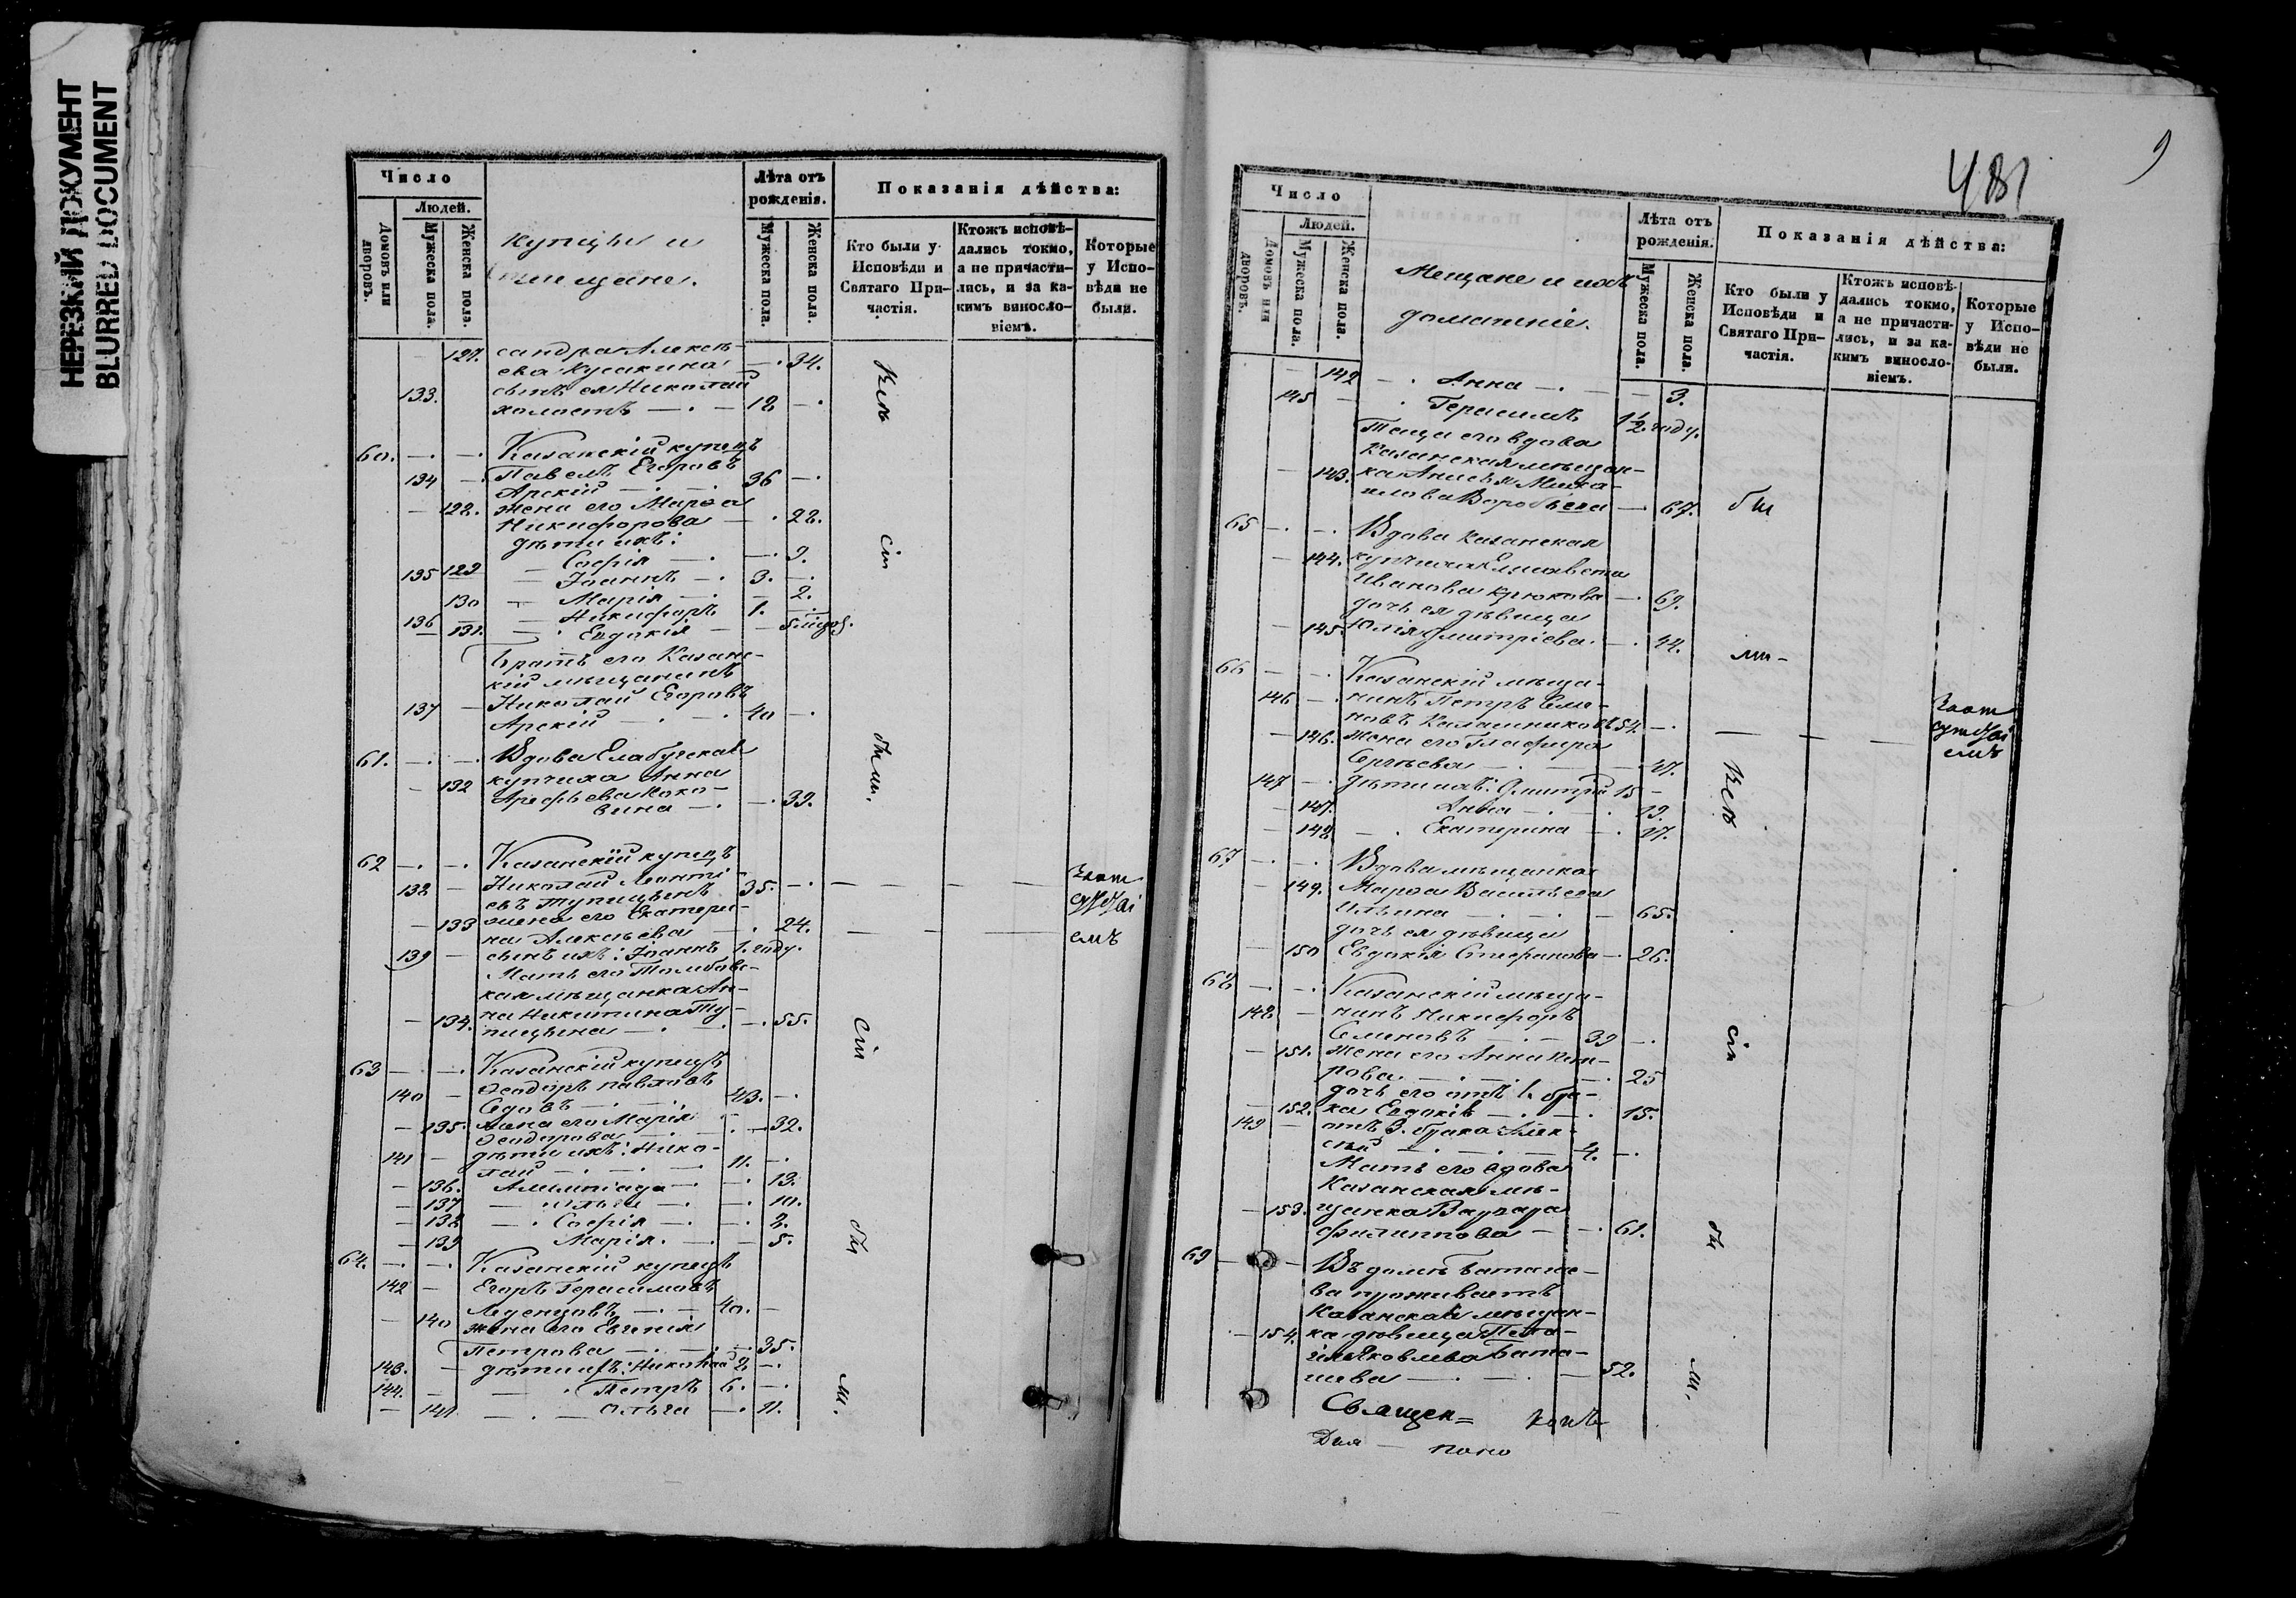 НЕРЕЗКИЙ ДОКУМЕНТ
BLURRED DOCUMENT
Число
Людей.
Домовъ или дворовъ.
Мужеска пола.
Женска пола.
купцы и
мещане.
Лѣта отъ рожденія.
Мужеска пола.
Женска пола.
Показанія дѣйства:
Кто были у Исповѣди и Святаго Причастія.
Ктожъ исповѣдались токмо, а не причастились, и за какимъ винословіемъ.
Которые у Исповѣди не были.
127. сандра Алексѣ-
ева Кушкина — 34.
133. сынъ ея Николай
холостъ — 18 —
60. — — Казанскій купецъ
134 — Павелъ Егоровъ
Арскій — 36 —
— 128. жена его Марѳа
Никифорова — 28.
дѣти ихъ:
129 — Софія — 9.
135 — Іоаннъ — 3. —
130 — Марія — 2.
136 — Никифоръ 1.
— 131. — Евдокія —
Братъ его Казанс-
кій мѣщанинъ
137 — Николай Егоровъ
Арскій — 40 —
61. — — Вдова Елабужская
— 132 купчиха Анна
Арефьева
— 39.
62 — — Казанскій купецъ
138 — Николай Леонті-
евъ Тупицынъ 35. —
— 133 жена его Екатери-
на Алексѣева — 24.
139 — сынъ ихъ: Іоаннъ 1. году.
Мать его Тамбовс-
кая мѣщанка Ан-
— 134. на Никитина Ту-
пицына — 55.
63 — — Казанскій купецъ
140 — Ѳеодоръ Павловъ
Седовъ — 43. —
— 135. жена его Марія
Ѳеодорова — 32.
141 — дѣти ихъ: Нико-
лай — 11. —
— 136. Алимпіада — 13.
— 137 — Ольга — 10.
— 138 — Софія — 2.
— 139 Марія. — 5.
64. — — Казанскій купецъ
142 — Егоръ Герасимовъ
Леденцовъ — 40. —
— 140 жена его Евгенія
Петрова — 35.
143. — дѣти ихъ: Николай 8 —
144. — — Петръ 6. —
— 141 — Ольга — 11.
481
Число
Людей.
Домовъ или дворовъ.
Мужеска пола.
Женска пола.
Мещане и ихъ
домашніе.
Лѣта отъ рожденія.
Мужеска пола.
Женска пола.
Показанія дѣйства:
Кто были у Исповѣди и Святаго Причастія.
Ктожъ исповѣдались токмо, а не причастились, и за какимъ винословіемъ.
Которые у Исповѣди не были.
— 142 — Анна — 3.
145 — Герасимъ 1½ году.
Теща его вдова
Казанская мѣщан-
— 143. ка Анисья Миха-
илова Воробьева — 67.
65 — — Вдова Казанская
— 144. купчиха Елисавета
Иванова Крюкова — 69.
дочь ея дѣвица
— 145. Юлія Дмитріева. — 44.
66 — — Казанскій мѣща-
146 — нинъ Петръ Семе-
новъ Калашниковъ 54 —
— 146. жена его Глафира
Сергѣева — 47.
147 — дѣти ихъ: Дмитрій 15 —
— 147. Анна — 19.
— 148 — Екатерина — 17.
67 — — Вдова мѣщанка
— 149. Марѳа Васильева
Ильина — 65.
дочь ея дѣвица
— 150 Евдокія Стефанова — 26.
68 — — Казанскій мѣща-
148 — нинъ Никифоръ
Семеновъ — 39 —
— 151. жена его Анна Пет-
рова — 25
дочь его отъ 1. бра-
— 152. ка Евдокія — 15.
149 — отъ 3. брака Алек-
сѣй — 4. —
Мать его вдова
Казанская мѣ-
— 153. щанка Варвара
Филиппова — 61.
69 — — Въ домѣ Баташе-
ва проживаетъ
Казанская мѣщан-
— 154. ка дѣвица Пела-
гія Яковлева Бата-
шева — 52.
Священ=